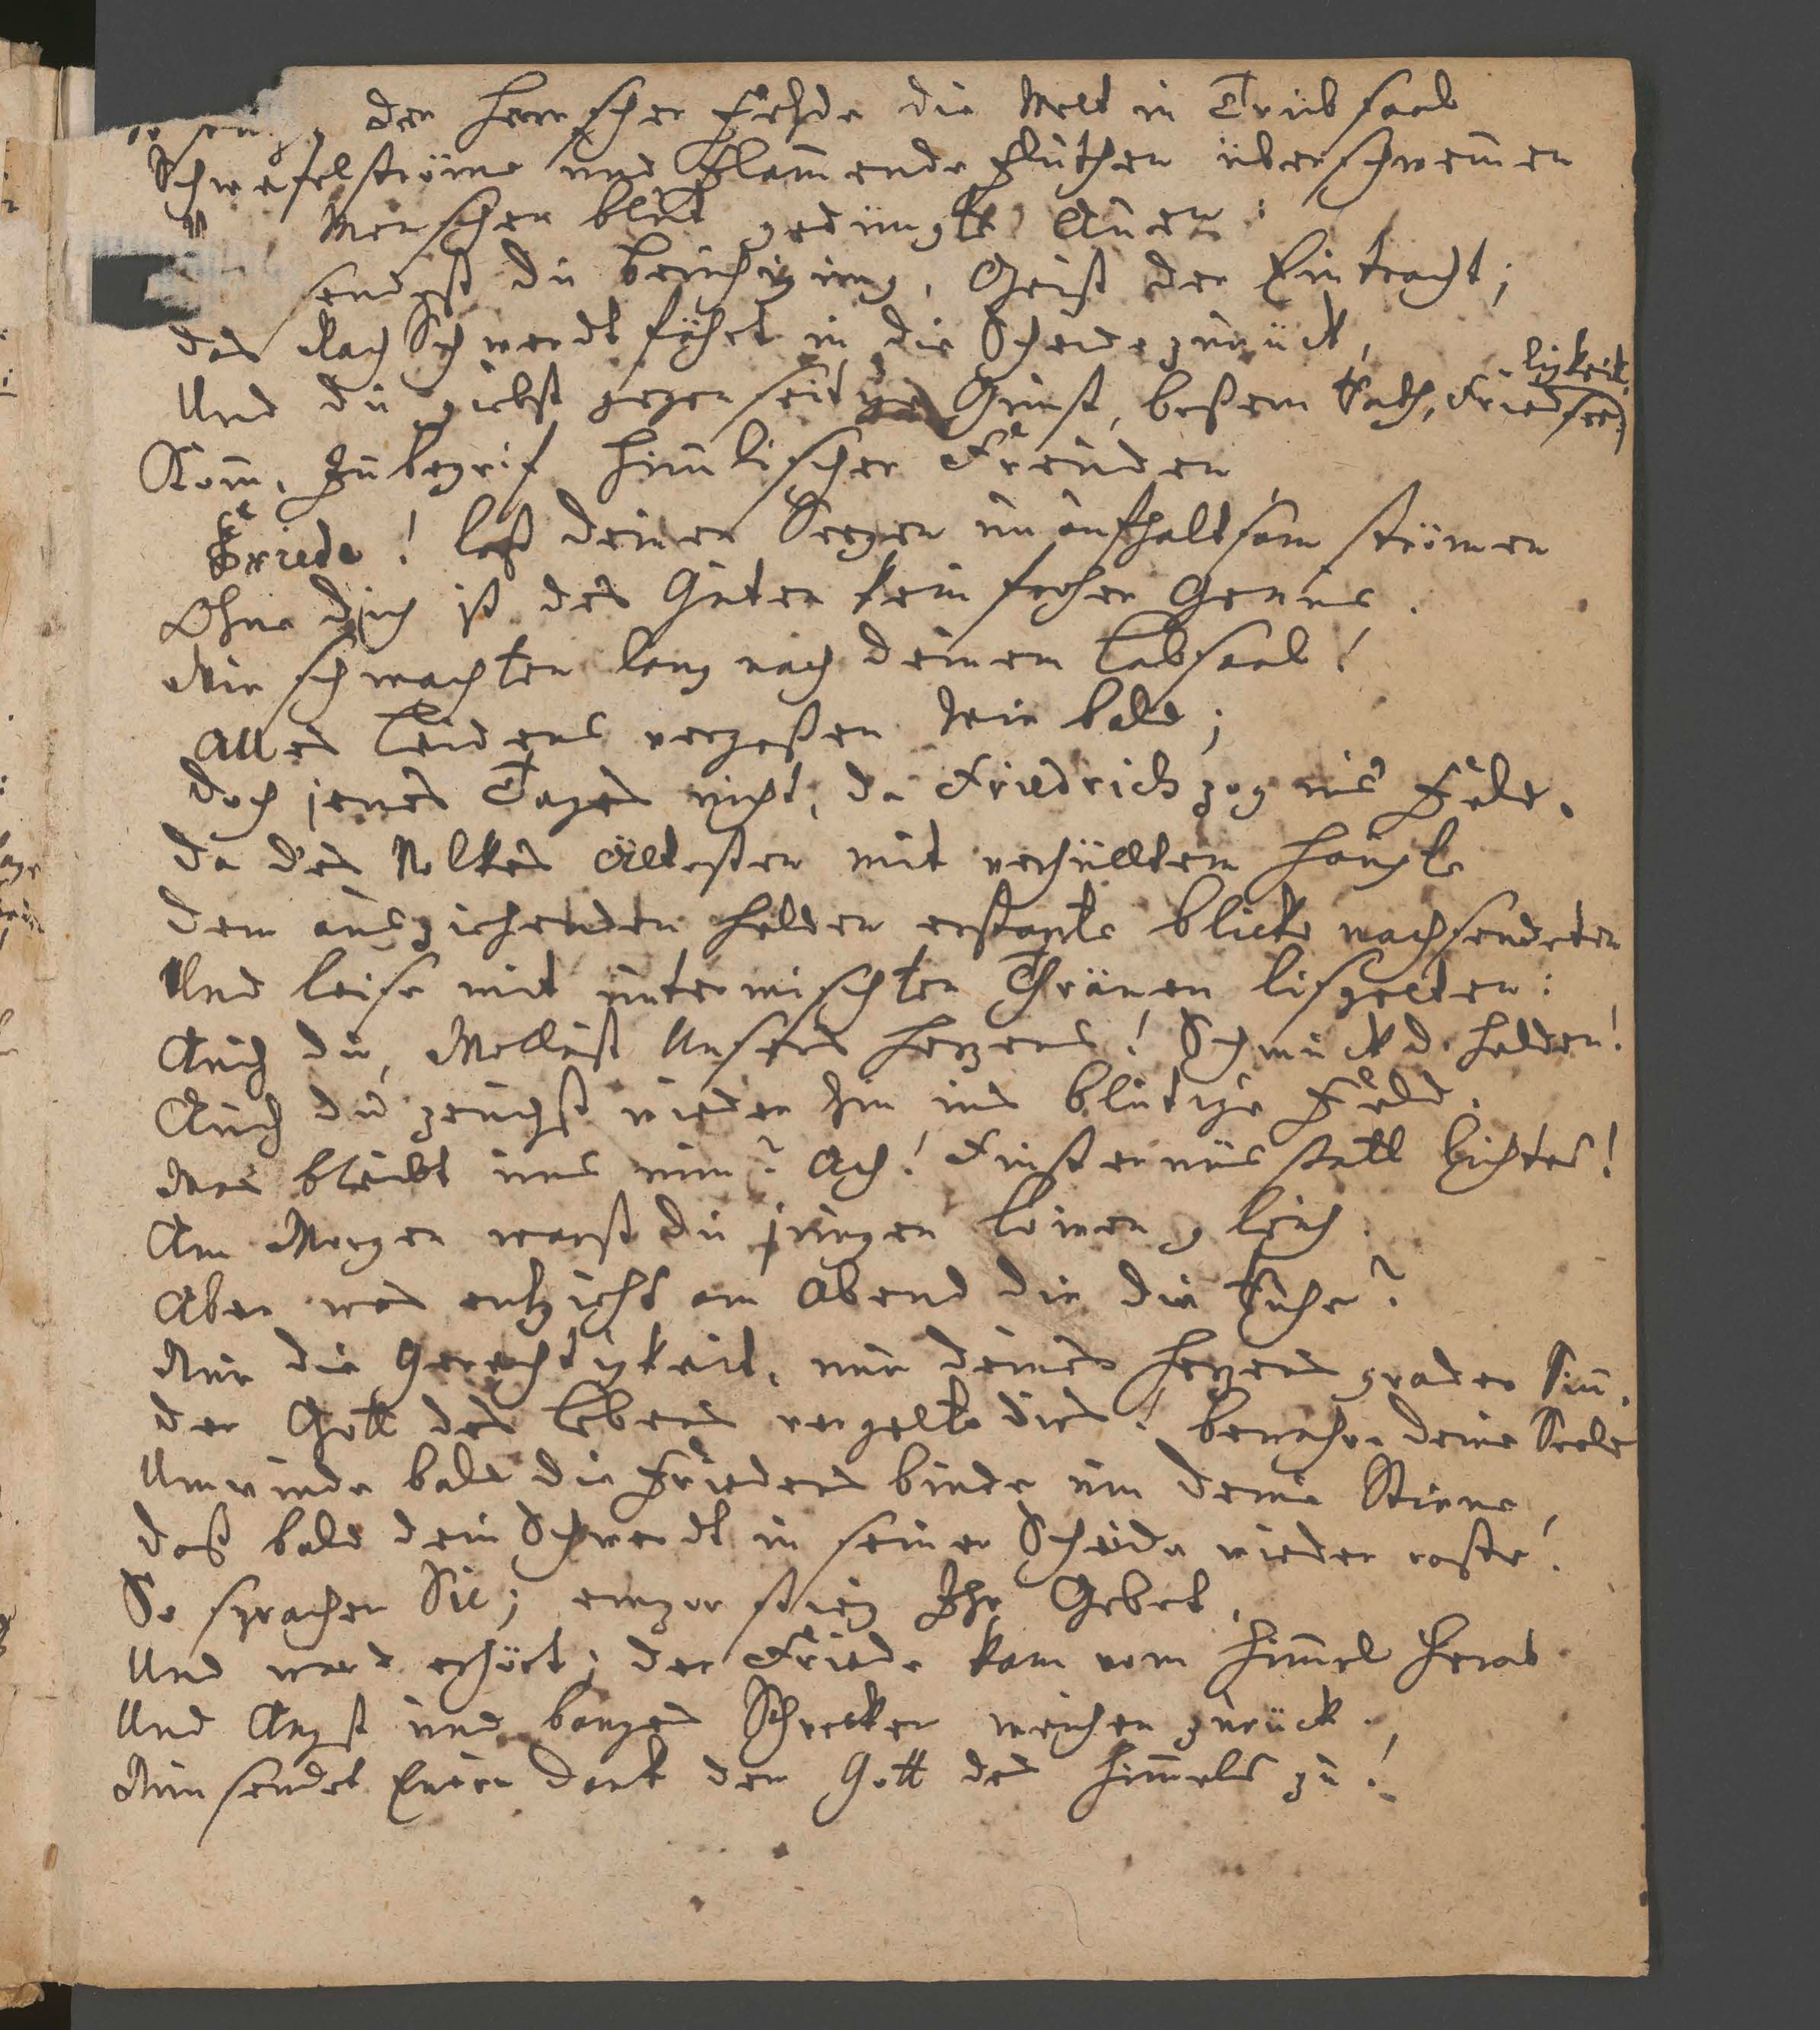 der Herrscher Fehde die Welt in Trübsaal
Schwefelströme und Flam̄ende Fluthen überschwem̄en
Menschen blut gedüngte Auen:
sendest du Beruhigung, Geist der Eintracht;
das Rach Schwerdt fährt in die Scheide zurück,
Und du giebst gegenseitige Gunst, beßern Rath, Friedsee-
ligkeit.
Kom̄, Inbegrif him̄lischer Freuden
Friede! laß deinen Seegen unaufhaltsam strömen
Ohne dich ist des Guten kein froher Genus.
Wir schmachten lang nach deinem Labsaal!
Alles Leidens vergeßen wir bald;
Doch jenes Tages nicht, da Friedrich zog ins Feld.
da des Volkes Ältesten mit verhülltem Haupte
dem ausziehenden Helden erstarte Blicke nachsendeten
Und leise mit untermischten Thränen lispelten:
Auch du, Wollust Unsers Herzens! Schmuck d. Helden!
Auch du zeuchst wieder hin ins blutige Feld.
Was bleibt uns nun? Ach! Finsternüs statt Lichtes!
Am Morgen warst du jungen Löwen gleich.
Aber was entzieht am Abend dir die Ruhe?
Nur die Gerechtigkeit, nur deines Herzens grader Sin̄.
der Gott des Lebens vergelte dirs! bewahre deine Seele
Umwinde bald die Friedens binde um deine Stirne,
daß bald dein Schwerdt in seiner Scheide wieder raste!
So sprachen Sie; empor stieg Ihr Gebet,
Und ward erhört; der Friede kam vom Him̄el herab
Und Angst und banges Schrecken weichen zurück.
Nun sendet Euern Dank dem Gott des Him̄els zu!